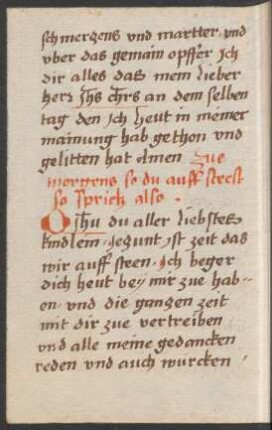 schmerzens vnd martter vnd
vber das gemain opffer Jch
dir alles das mein lieber
herr Jhs chrs an dem selben
tag den ich heut in meiner
mainung hab gethon vnd
gelitten hat Amen Zue
morgens so du auff steest
so sprich also .
O Jhu du aller liebstes
kindlein / Jezunt ist zeit das
wir auff steen / Jch beger
dich heut bey mir zue hab-
en / vnd die gantzen zeit
mit dir zue vertreiben
vnd alle meine gedancken
reden vnd auch wurcken /